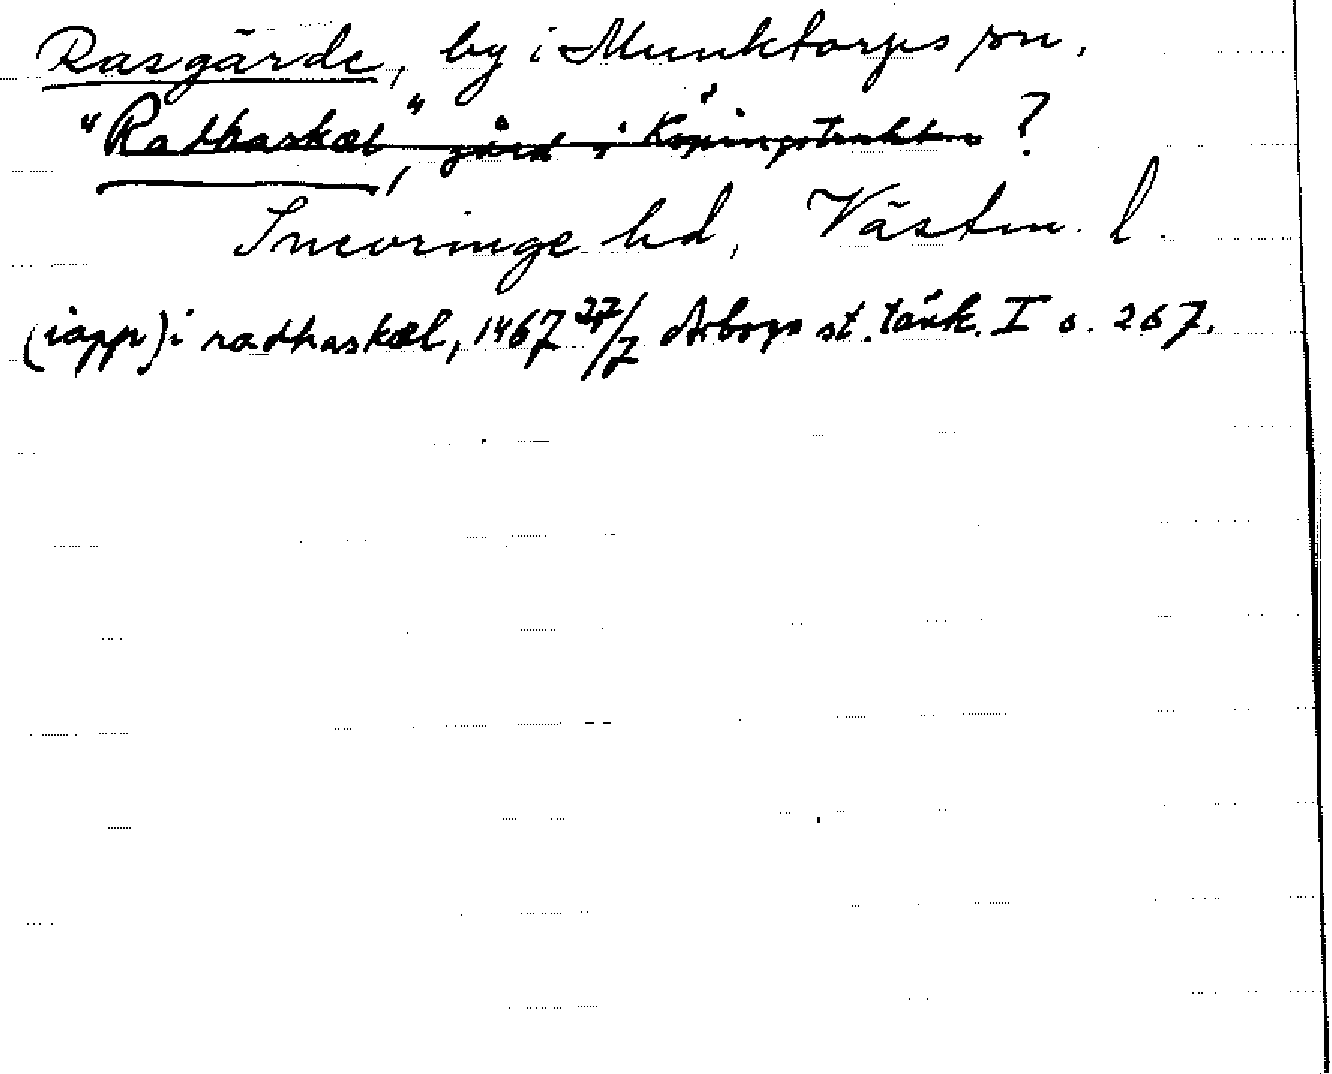 Rasgärde, by i Munktorps sn.
"Radhaskæl", gård i Köpingstrakten ?
Snevringe hd, Västm. l.
(iapp) i radhaskæl, 1467 27/7 Arboga st. tänk. I s. 267.